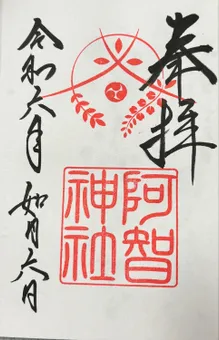 奉拝
阿智
神社
令和六年 如月六日